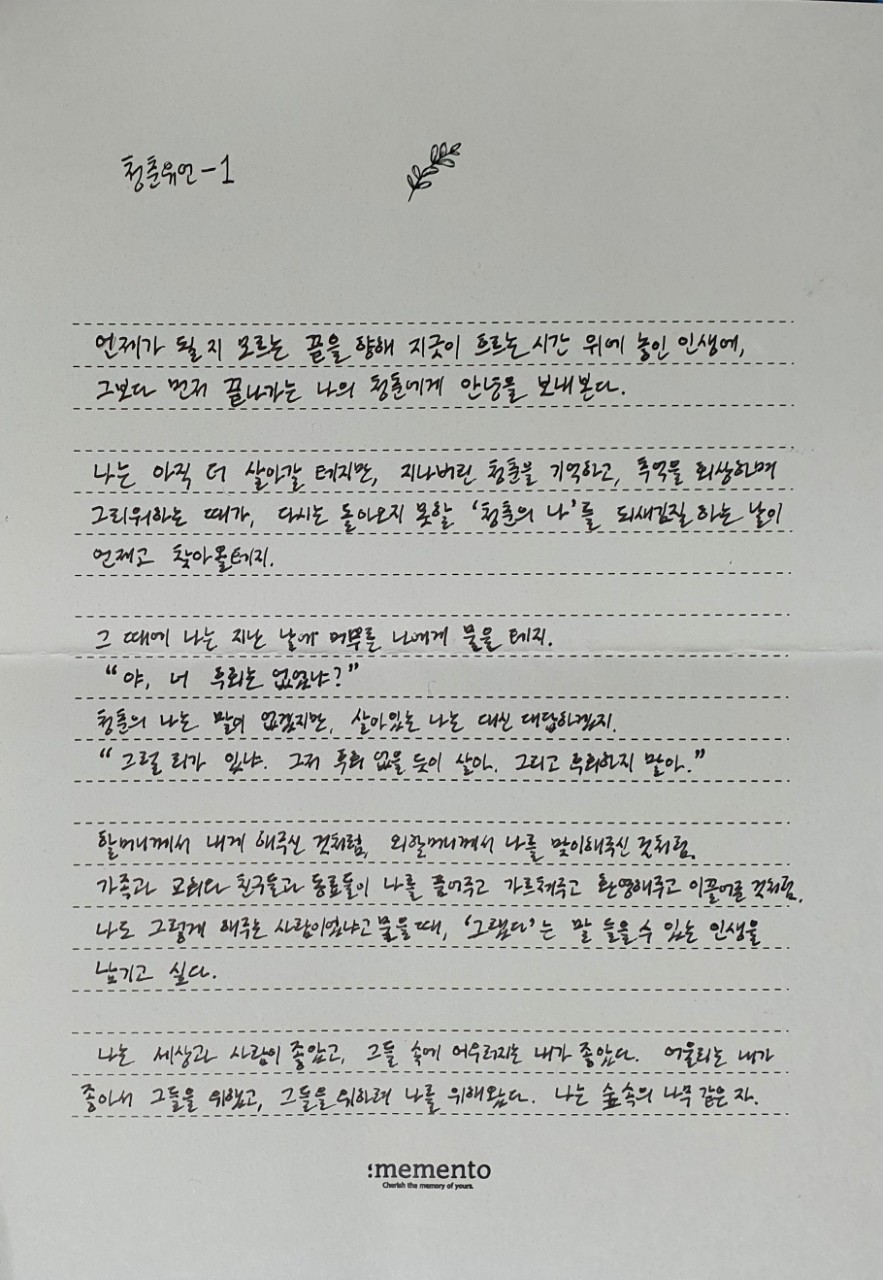 청춘유언-1
언제가 될 지 모르는 끝을 향해 지긋이 흐르는 시간 위에 놓인 인생에,
그보다 먼저 끝나가는 나의 청춘에게 안녕을 보내본다.
나는 아직 더 살아갈 테지만, 지나버린 청춘을 기억하고, 추억을 회상하며
그리워하는 때가, 다시는 돌아오지 못할 '청춘의 나'를 되새김질 하는 날이
언제고 찾아올테지.
그 때에 나는 지난 날에 머무른 나에게 물을 테지.
"야, 너 후회는 없었냐?"
청춘의 나는 말이 없겠지만, 살아있는 나는 대신 대답하겠지.
"그럴 리가 있냐. 그저 후회 없을 듯이 살아. 그리고 후회하지 말아."
할머니께서 내게 해주신 것처럼, 외할머니께서 나를 맞이해주신 것처럼.
가족과 교회와 친구들과 동료들이 나를 품어주고 가르쳐주고 환영해주고 이끌어준 것처럼.
나도 그렇게 해주는 사람이었냐고 물을 때, '그랬다'는 말 들을 수 있는 인생을
남기고 싶다.
나는 세상과 사람이 좋았고, 그들 속에 어우러지는 내가 좋았다. 어울리는 내가
좋아서 그들을 위했고, 그들을 위하려 나를 위해왔다. 나는 숲속의 나무 같은 자.
:memento
Cherish the memory of yours.